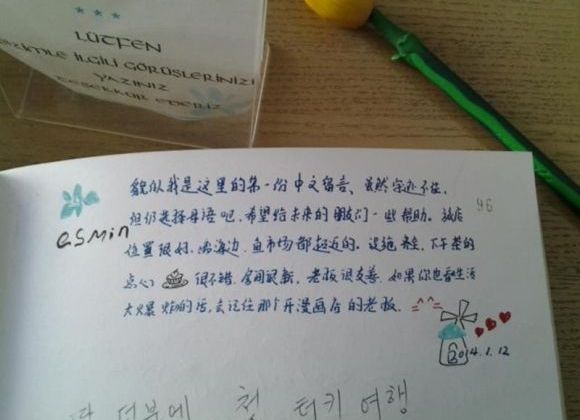 LÜTFEN
BİZİMLE İLGİLİ GÖRÜŞLERİNİZİ
YAZINIZ
TEŞEKKÜR EDERİZ
貌似我是这里的第一份中文留言、虽然字迹不佳、
但仍选择母语吧,希望给未来的朋友们一些帮助。旅店
96
esmin
位置很好、沿海边、鱼市场都挺近的。设施齐全、下午茶的
点心 很不错、房间很新,老板很友善,如果你也看生活
大火爆炸的话,去记住那个开漫画店的老板. =^^=
2014.1.12
덕분에 첫 터키 여행